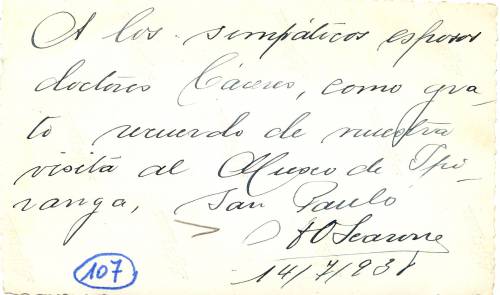 A los simpáticos esposos
doctores Cáceres, como gra-
to recuerdo de nuestra
visita al Museo de Ypi-
ranga, San Paulo
14/7/938
107